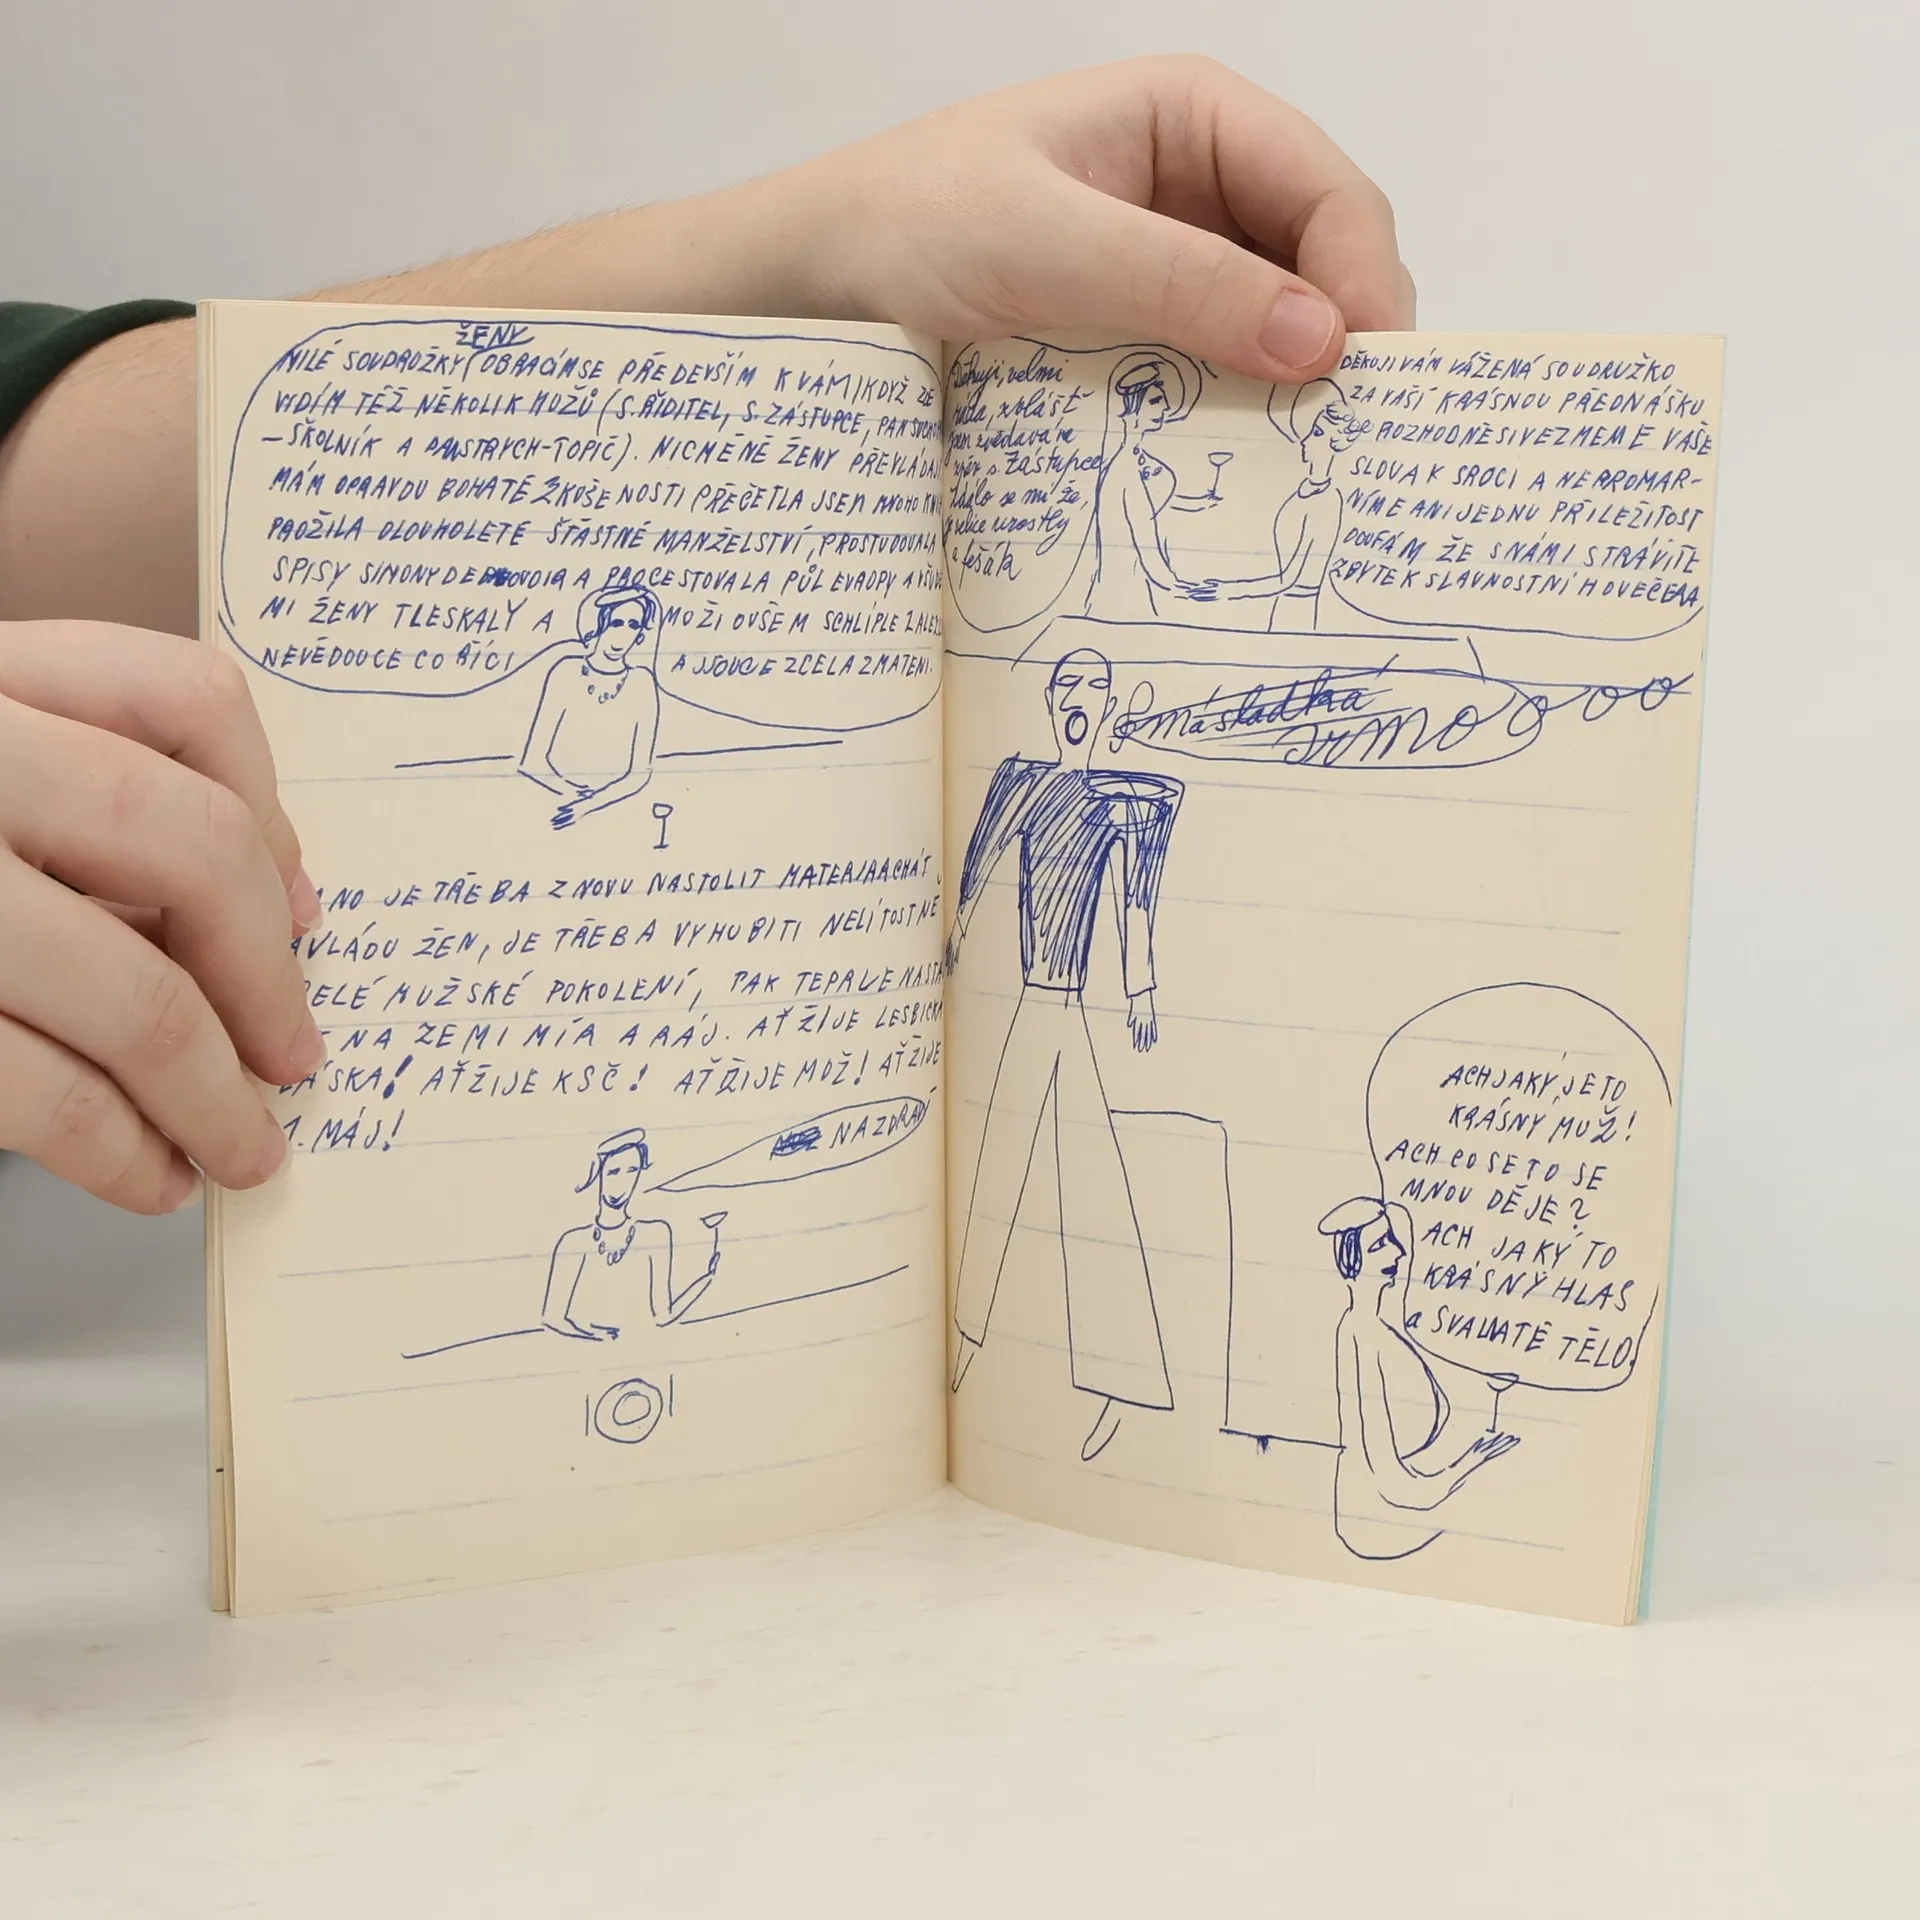 ŽENY
MILÉ SOUDRUŽKY OBRACÍM SE PŘEDEVŠÍM K VÁM I KDYŽ ZDE
VIDÍM TÉŽ NĚKOLIK MUŽŮ (S. ŘIDITEL, S. ZÁSTUPCE, PAN
– ŠKOLNÍK A PAN STRÝCH-TOPIČ). NICMÉNĚ ŽENY PŘEVLÁDAJ
MÁM OPRAVDU BOHATÉ ZKUŠENOSTI PŘEČETLA JSEM MNOHO KNIH
PROŽILA DLOUHOLETÉ ŠTASTNÉ MANŽELSTVÍ, PROSTUDOVALA
SPISY SIMONY DE A PROCESTOVALA PŮL EVROPY A VŠUDE
MI ŽENY TLESKALY A MUŽI OVŠEM SCHLÍPLE ZALEZLI
NEVĚDOUCE CO ŘÍCI A JSOUCE ZCELA ZMATENI.
ANO JE TŘEBA ZNOVU NASTOLIT MATERIARCHÁT
VLÁDU ŽEN, JE TŘEBA VYHUBITI NELÍTOSTNĚ
CELÉ MUŽSKÉ POKOLENÍ, PAK TEPRVE NASTA
NA ZEMI MÍR A RÁJ. AŤ ŽIJE LESBICKÁ
LÁSKA! AŤ ŽIJE KSČ! AŤ ŽIJE MDŽ! AŤ ŽIJE
1. MÁJ!
NAZDRAVÍ
Děkuji, velmi
ráda, zvlášť
jsem zvědavá na
s. Zástupce
zdálo se mi že,
je velice urostlý
a fešák
DĚKUJI VÁM VÁŽENÁ SOUDRUŽKO
ZA VAŠÍ KRÁSNOU PŘEDNÁŠKU
ROZHODNĚ SI VEZMEME VAŠE
SLOVA K SRDCI A NEPROMAR-
NÍME ANI JEDNU PŘÍLEŽITOST
DOUFÁM ŽE S NÁMI STRÁVÍTE
ZBYTEK SLAVNOSTNÍHO VEČERA
má sladká
IRMO O O O O
ACH JAKÝ JE TO
KRÁSNÝ MUŽ!
ACH CO SE TO SE
MNOU DĚJE?
ACH JAKÝ TO
KRÁSNÝ HLAS
a SVALNATÉ TĚLO.